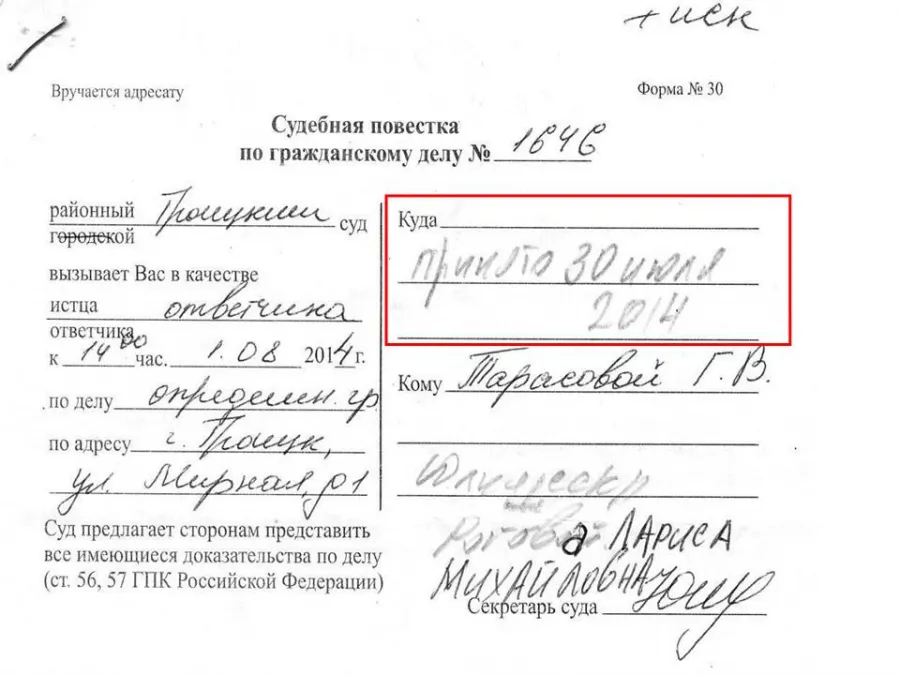 + иск
Вручается адресату
Форма № 30
Судебная повестка
по гражданскому делу № 1646
районный Троицкий суд
городской
вызывает Вас в качестве
истца ответчика
ответчика
к 14 00 час. 1.08 2014 г.
по делу определен. гр
по адресу г. Троицк,
ул. Мирная, д 1
Суд предлагает сторонам представить
все имеющиеся доказательства по делу
(ст. 56, 57 ГПК Российской Федерации)
Куда
принято 30 июля
2014
Кому Тарасовой Г. В.
а Лариса
Михайловна
Секретарь суда